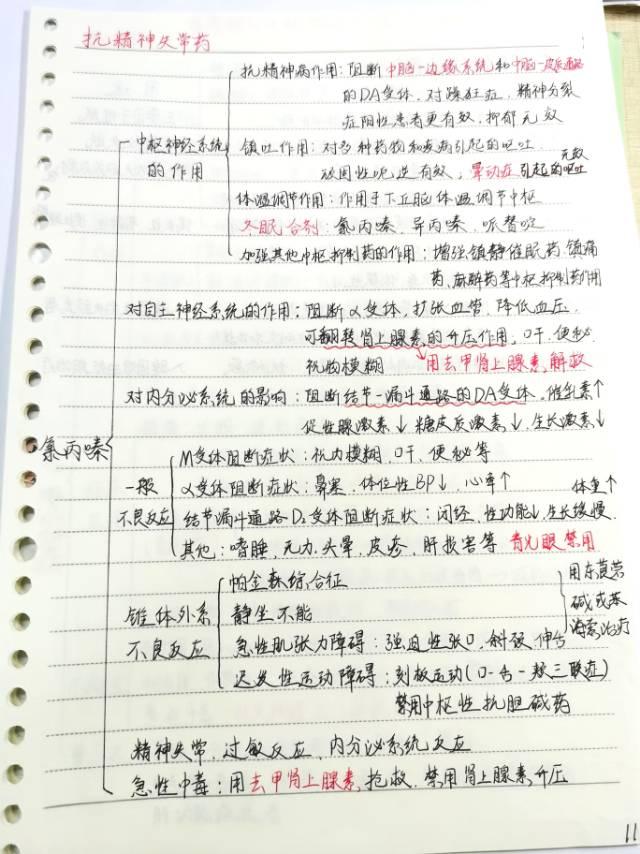 抗精神失常药
抗精神病作用：阻断中脑-边缘系统和中脑-皮质通路
的DA受体，对躁狂症，精神分裂
症阳性患者更有效，抑郁无效
中枢神经系统
的作用
镇吐作用：对多种药物和疾病引起的呕吐
顽固性呃逆有效，晕动症引起的呕吐无效
体温调节作用：作用于下丘脑体温调节中枢
冬眠合剂：氯丙嗪、异丙嗪、哌替啶
加强其他中枢抑制药的作用：增强镇静催眠药、镇痛
药、麻醉药等中枢抑制药作用
对自主神经系统的作用：阻断α受体，扩张血管，降低血压，
可翻转肾上腺素的升压作用，口干、便秘
视物模糊 用去甲肾上腺素解救
对内分泌系统的影响：阻断结节-漏斗通路的DA受体，催乳素↑
促性腺激素↓ 糖皮质激素↓，生长激素↓
氯丙嗪
M受体阻断症状：视力模糊，口干，便秘等
一般
不良反应
α受体阻断症状：鼻塞，体位性BP↓，心率↑
结节漏斗通路D₂受体阻断症状：闭经，性功能↓生长缓慢，体重↑
其他：嗜睡，无力，头晕，皮疹，肝损害等 青光眼禁用
锥体外系
不良反应
帕金森综合征
静坐不能
急性肌张力障碍：强迫性张口，斜颈，伸舌
用东莨菪
碱或苯
海索治疗
迟发性运动障碍：刻板运动(口-舌-颊三联症)
禁用中枢性抗胆碱药
精神失常，过敏反应，内分泌系统反应
急性中毒：用去甲肾上腺素抢救，禁用肾上腺素升压
11